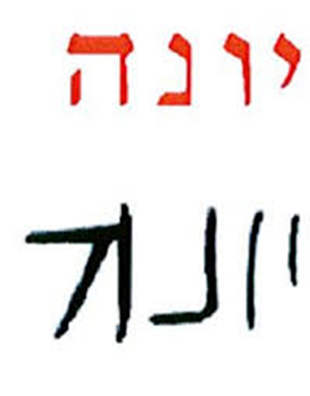 יונה
יונה